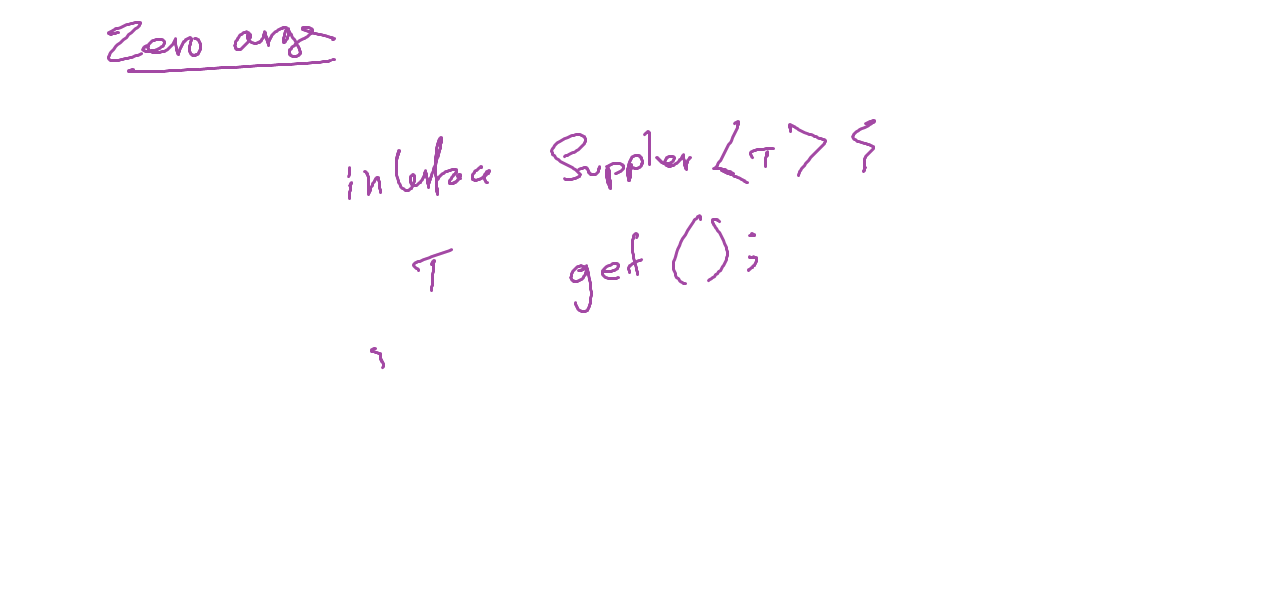 Zero args
interface Supplier <T> {
T get();
}